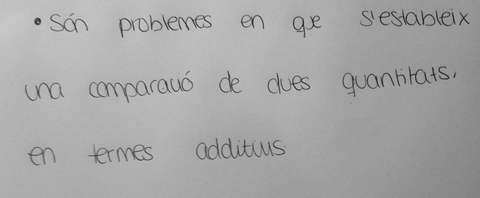 • Són problemes en que s'estableix
una comparació de dues quantitats,
en termes additius